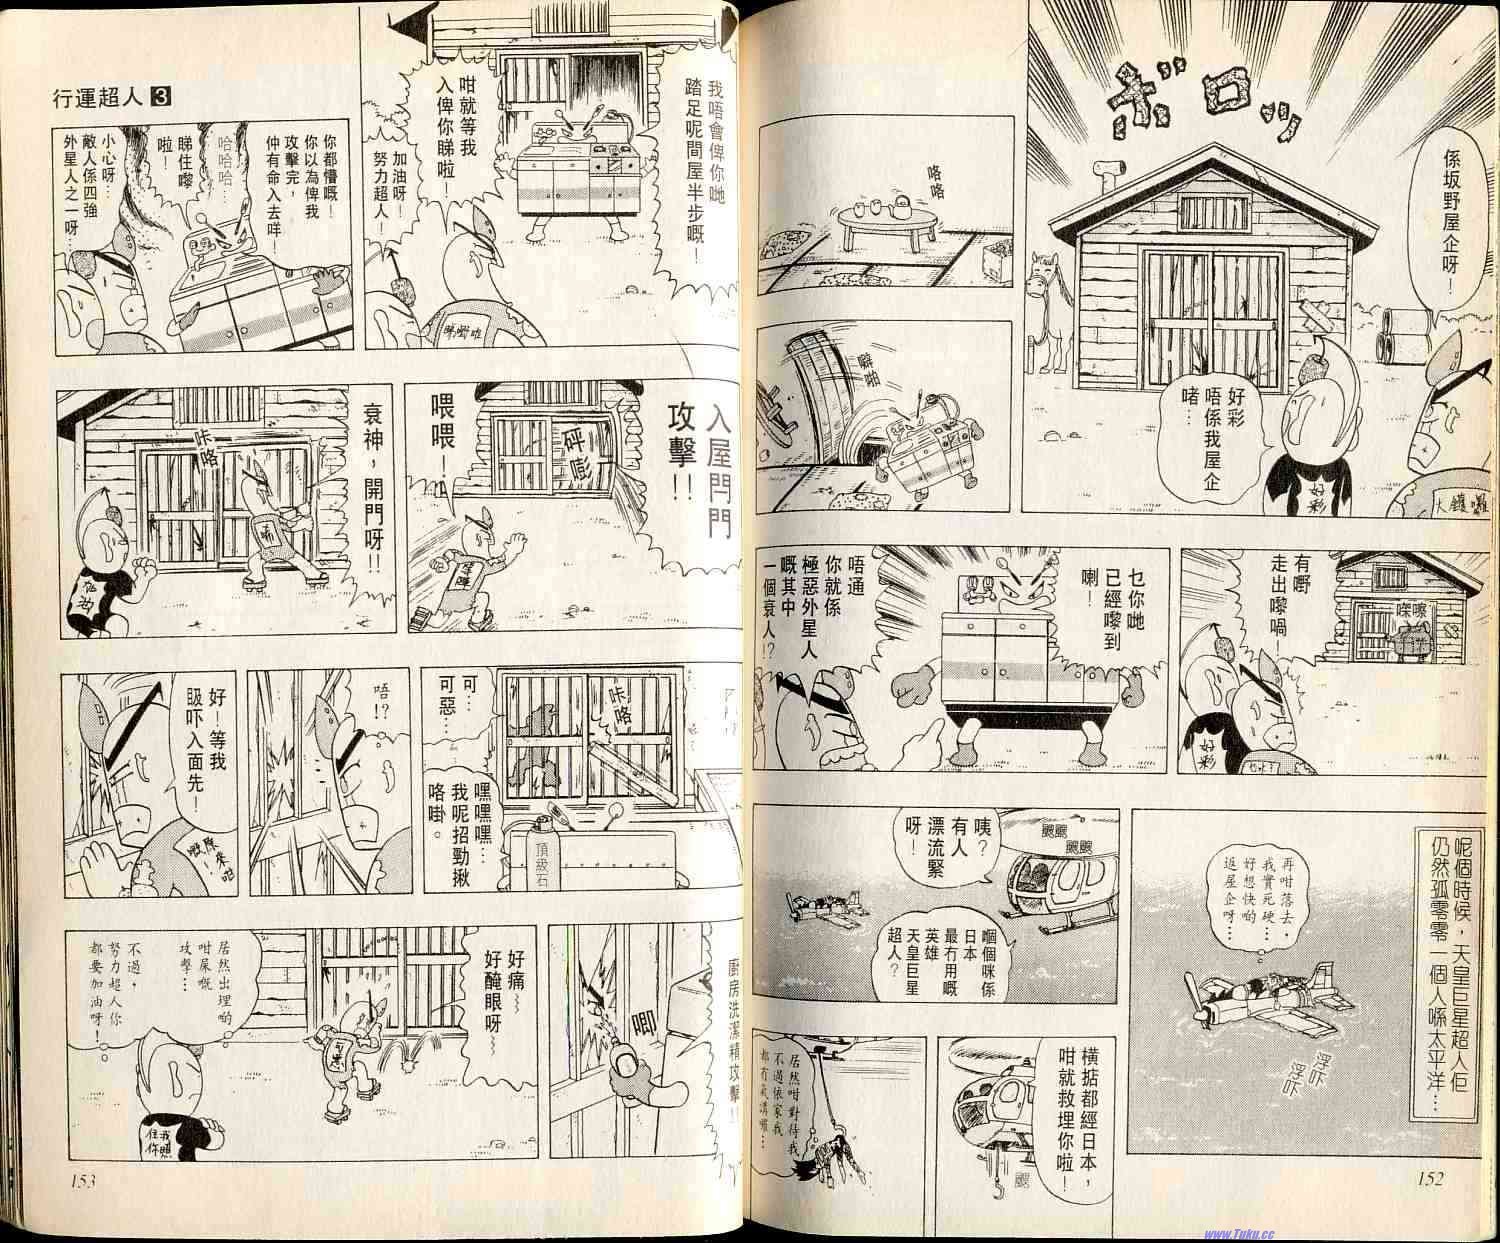 ボロッ
係坂野屋企呀！
好彩
唔係我屋企
啫…
好彩
大鑊囉
咯
咯
噼
啪
有嘢
走出嚟喎！
㗎嚓
好彩
乜你哋
已經嚟到
喇！
唔通
你就係
極惡外星人
嘅其中
一個衰人!?
呢個時候，天皇巨星超人佢
仍然孤零零一個人喺太平洋…
再咁落去，
我實死硬…
好想快啲
返屋企呀…
浮吓
浮吓
颼颼
颼颼
咦？
有人
漂流緊
呀！
嗰個咪係
日本
最冇用嘅
英雄
天皇巨星
超人？
橫掂都經日本，
咁就救埋你啦！
颼
居然咁對待我
不過依家我
都冇氣講囉…
152
行運超人3
我唔會俾你哋
踏足呢間屋半步嘅！
咁就等我
入俾你睇啦！
加油呀！
努力超人！
你都懵嘅！
你以為俾我
攻擊完，
仲有命入去咩！
哈哈
哈哈
哈…
睇住嚟
啦！
小心呀…
敵人係四強
外星人之一呀…
入屋閂門
攻擊!!
喂
喂！
砰
嘭
衰神，開門呀!!
咔
咯
可…
可惡…
咔
咯
嘿嘿嘿…
我呢招勁揪
咯啩。
頂級石
唔!?
好！等我
瞓吓入面先！
原來咁
廚房洗潔精攻擊!!
唧
好痛~
好醃眼呀~
可惡
居然出埋啲
咁屎嘅
攻擊…
不過，
努力超人你
都要加油呀！
我照
住你
153
www.Tuku.cc